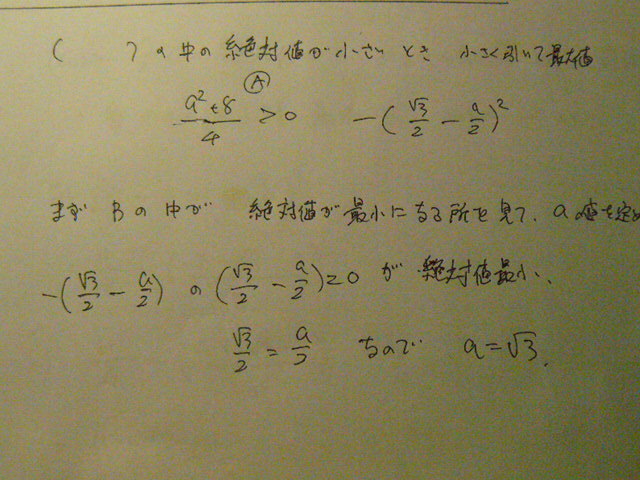 (　　)の中の絶対値が小さいとき 小さく引いて最大値
Ⓐ
(a²+8)/4 > 0　　-(√3/2 - a/2)²
まず Bの中が 絶対値が最小になる所を見て、aの値を定め
-(√3/2 - a/2) の (√3/2 - a/2)=0 が 絶対値最小、
√3/2 = a/2 なので a=√3.